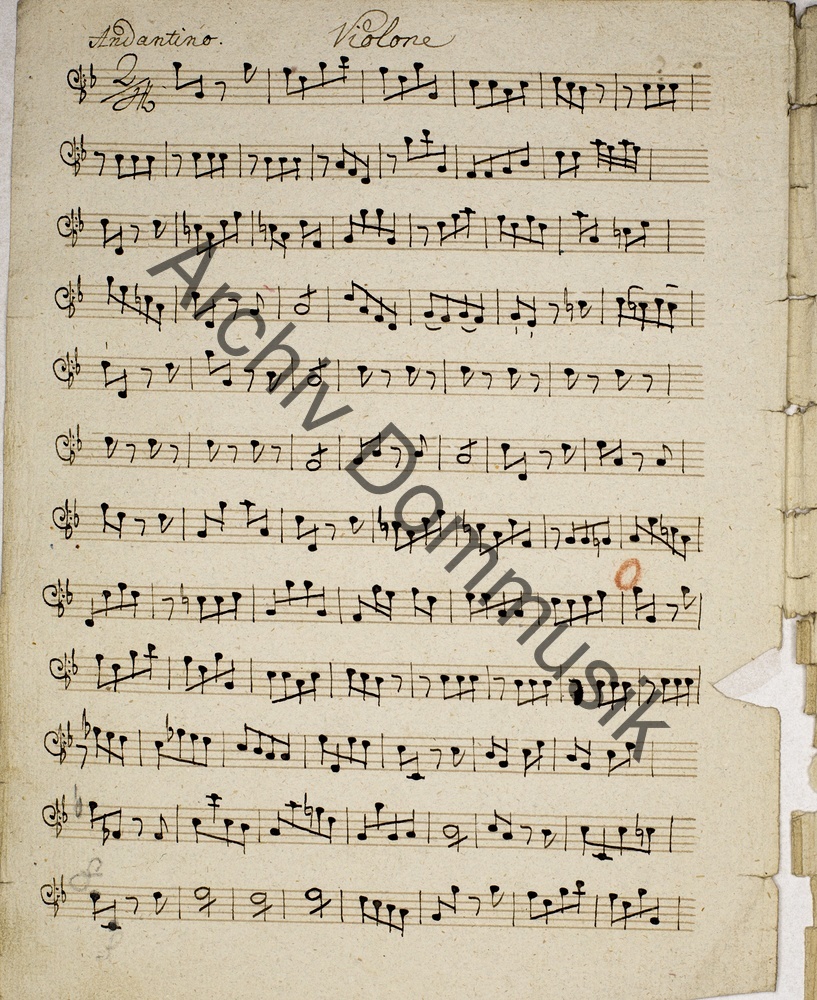 Andantino. Violone
2/4
Archiv Dommusik